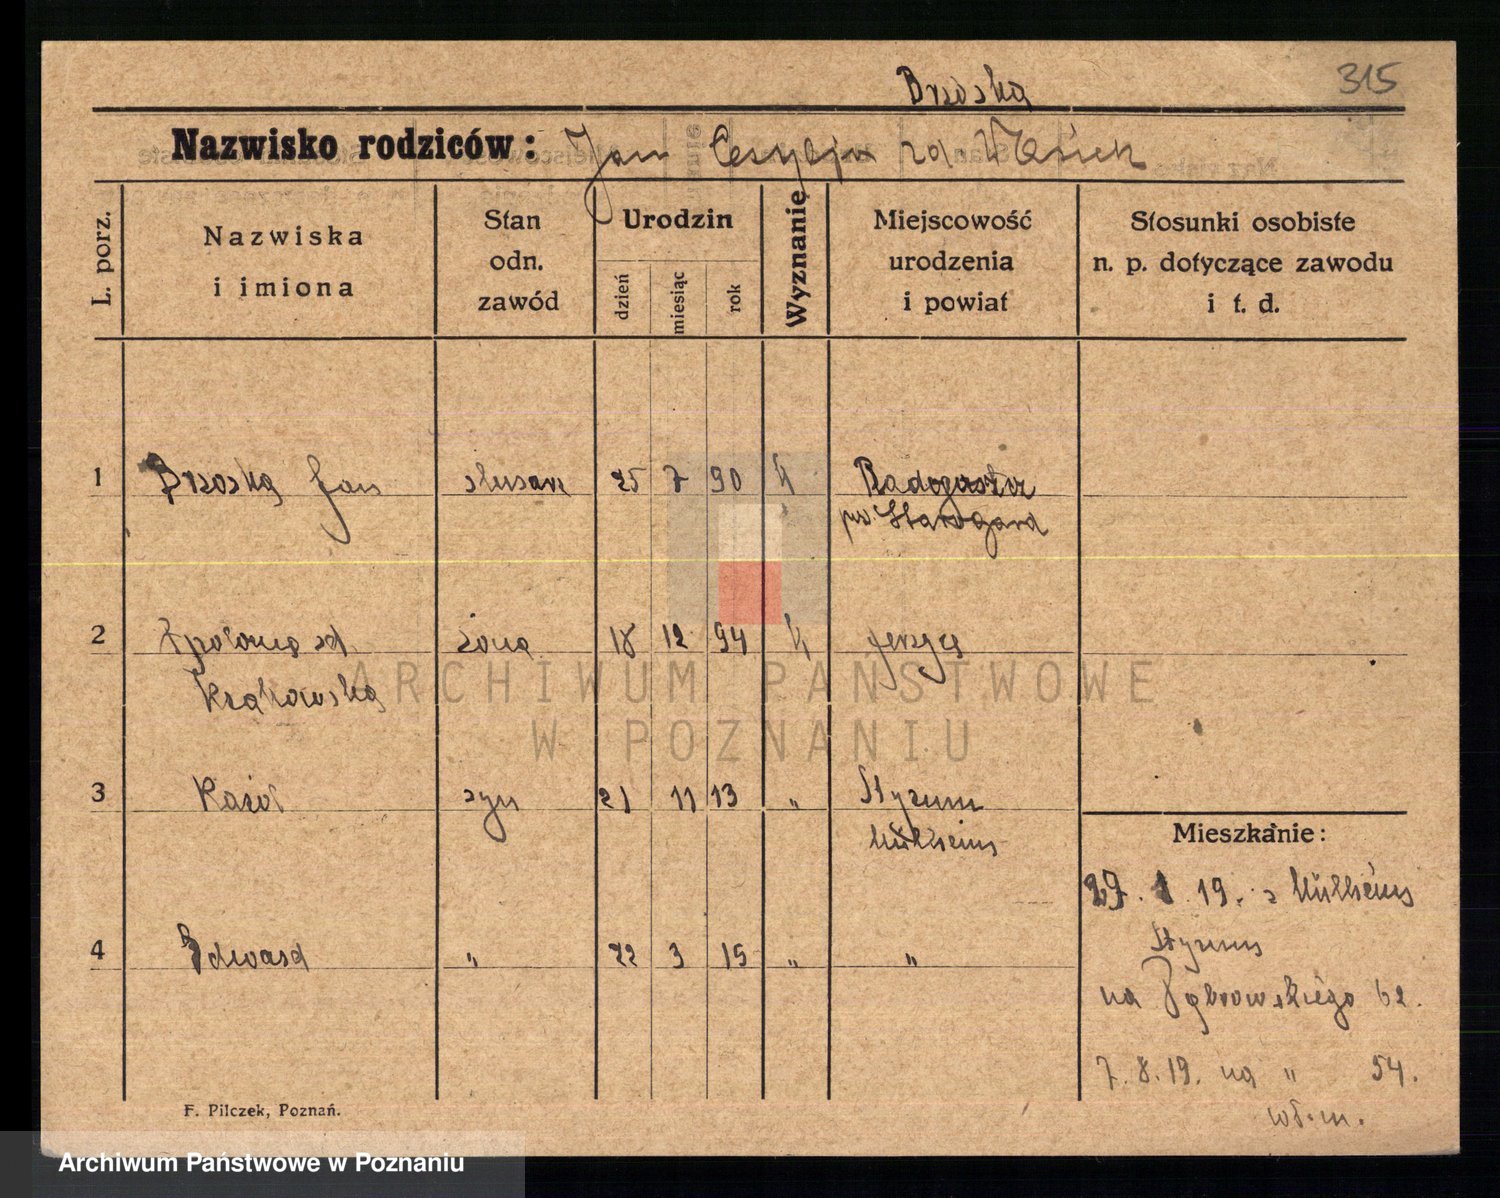 315
Brzoska
Nazwisko rodziców: Jan
L. porz.
Nazwiska
i imiona
Stan
odn.
zawód
Urodzin
dzień
miesiąc
rok
Wyznanię
Miejscowość
urodzenia
i powiat
Stosunki osobiste
n. p. dotyczące zawodu
i t. d.
1 Brzoska Jan 25 7 90 k
pow. Starogard
2 żona 18 12 94 k Jerzyce
Krakowska
3 Karol syn 21 11 13 „ Styrum
Mülheim
Mieszkanie:
1 19. z Mülheim
Styrum
4 Edward „ 22 3 15 „ „
na Dąbrowskiego 62.
7. 8. 19. na „ 54.
F. Pilczek, Poznań.
ARCHIWUM PAŃSTWOWE
W POZNANIU
Archiwum Państwowe w Poznaniu